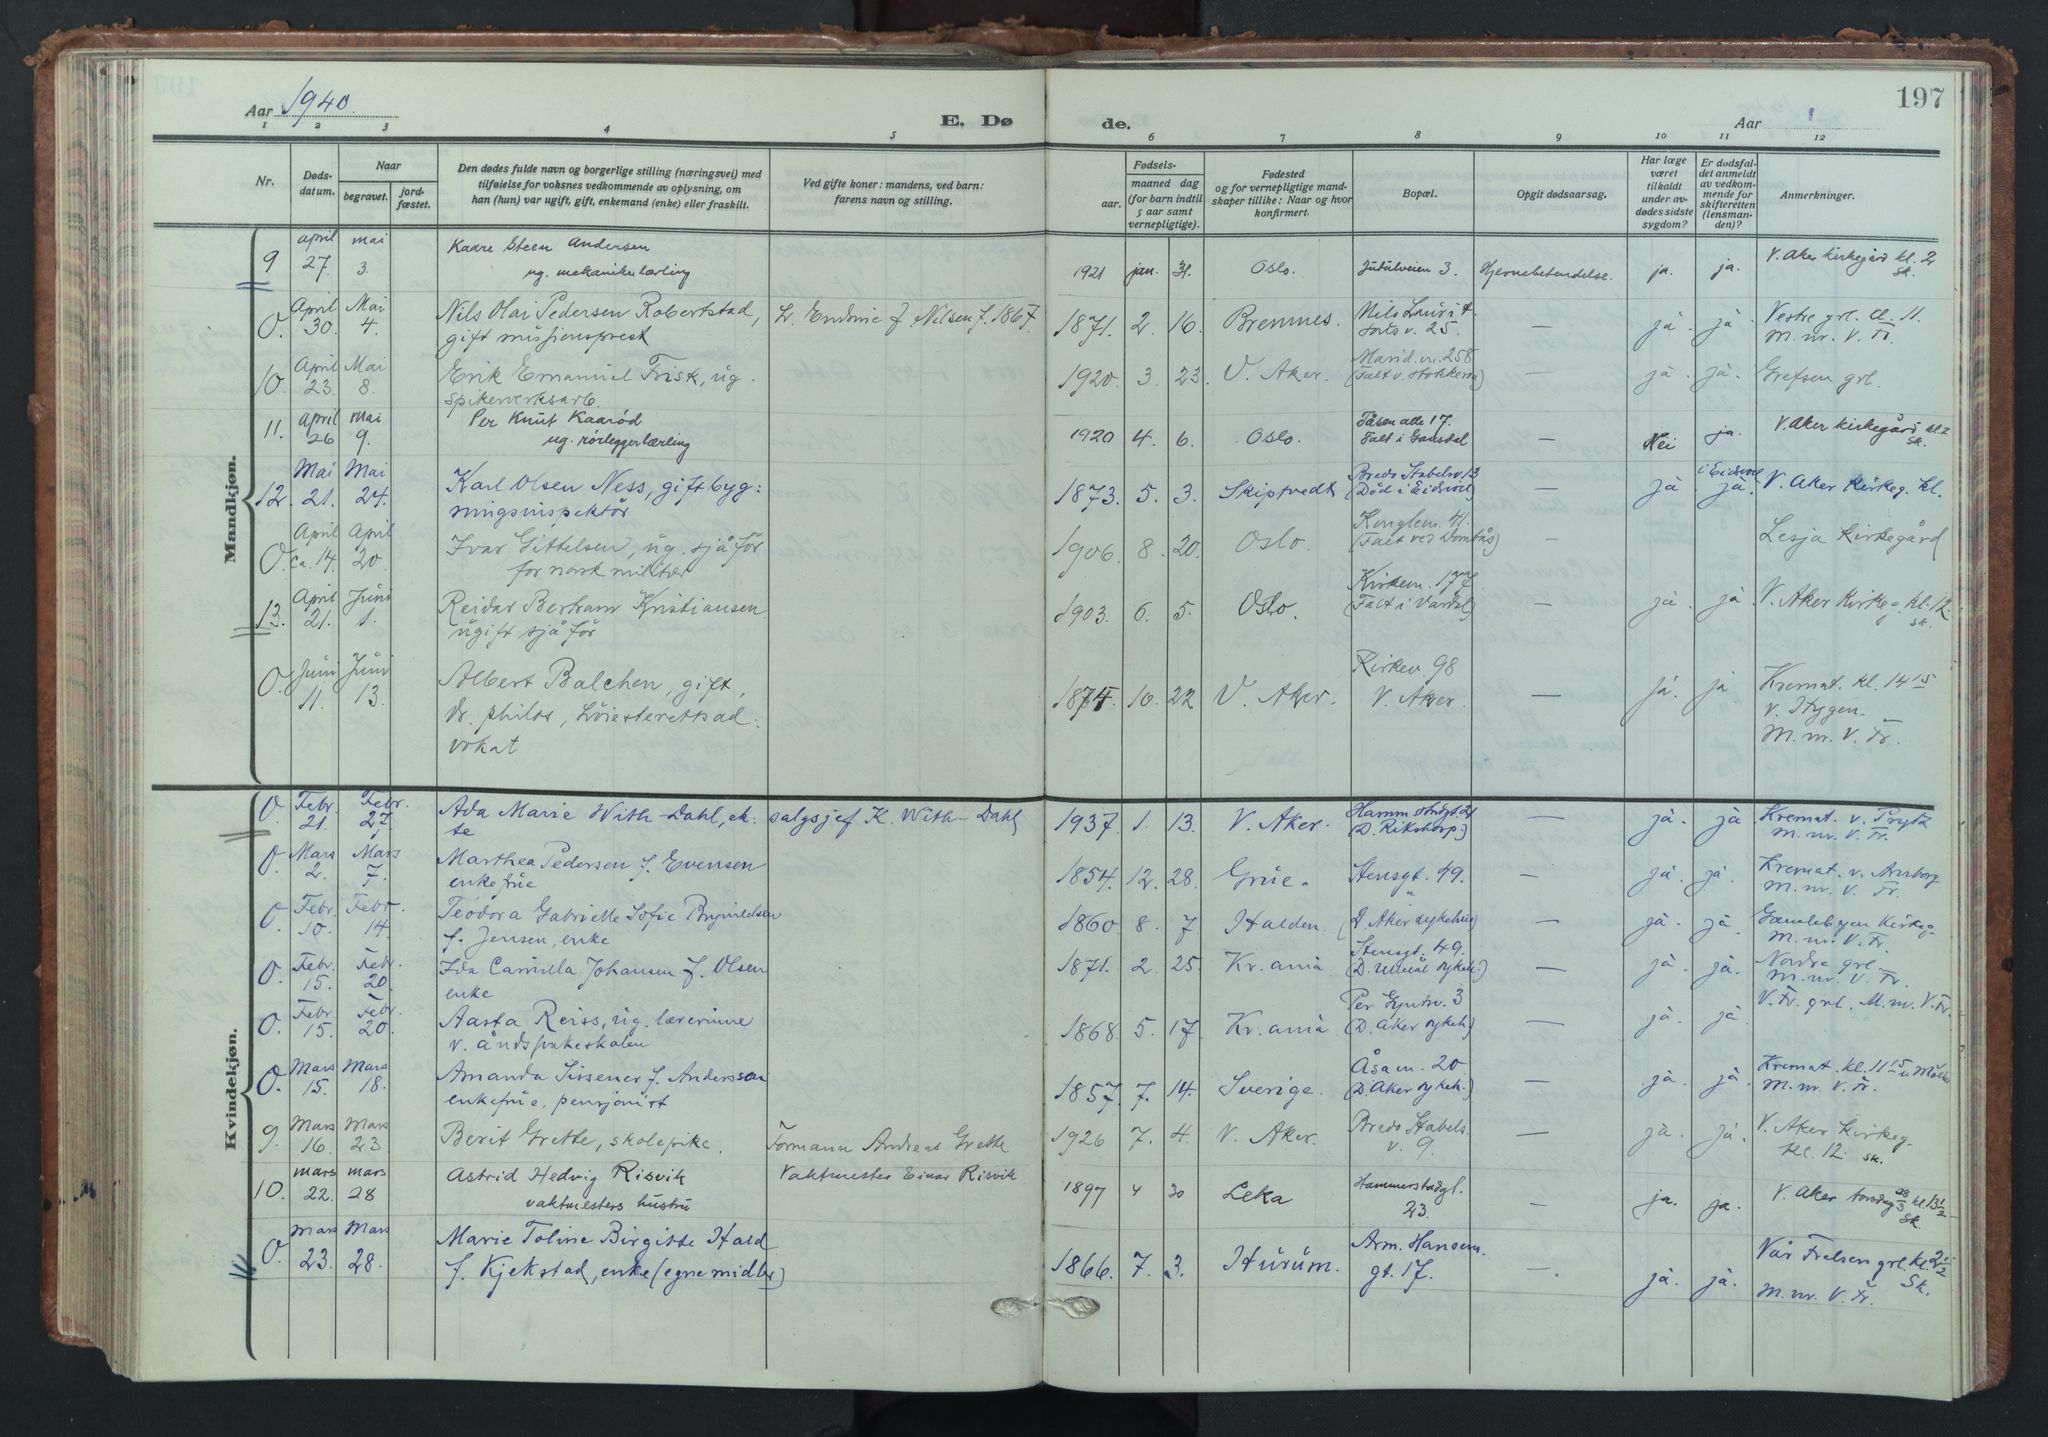 Aar 1940.
197
E. Dø
de.
Aar
1 2 3 4 5 6 7 8 9 10 11 12
Nr.
Døds-
datum.
Naar
begravet.
jord-
fæstet.
Den dødes fulde navn og borgerlige stilling (næringsvei) med
tilføielse for voksnes vedkommende av oplysning, om
han (hun) var ugift, gift, enkemand (enke) eller fraskilt.
Ved gifte koner: mandens, ved barn:
farens navn og stilling.
Fødsels-
aar.
maaned dag
(for barn indtil
5 aar samt
vernepligtige).
Fødested
og for vernepligtige mand-
skaper tillike: Naar og hvor
konfirmert.
Bopæl.
Opgit dødsaarsag.
Har læge
været
tilkaldt
under av-
dødes sidste
sygdom?
Er dødsfal-
det anmeldt
av vedkom-
mende for
skifteretten
(lensman-
den)?
Anmerkninger.
Mandkjøn.
9 april 27. mai 3. Kaare Steen Andersen
ug. mekanikerlærling
1921 jan. 31. Oslo. Jutulveien 3. Hjernebetendelse. ja. ja. V. Aker kirkegård kl. 2
Sk.
0. April 30. Mai 4. Nils Olai Pedersen Robertstad,
gift misjonsprest
f. Nilsen f. 1867.
1871. 2. 16. Bremnes. Nils Laurit
v. 25. — ja. ja. Vestre grl. kl. 11.
M. nr. V. Fr.
10. April 23. Mai 8. Erik Emanuel Frisk, ug.
spikerverksarb.
1920. 3. 23. V. Aker. Marid.vn. 258
(Falt v. Stokkerva) — ja. ja. Grefsen grl.
11. April 26 mai 9. Per Knut Kaarød
ug. rørleggerlærling
1920 4. 6. Oslo. Tåsen alle 17.
Falt i Gausdal — Nei ja. V. Aker kirkegård kl. 2
Sk.
12. Mai 21. Mai 24. Karl Olsen Ness, gift byg:
ningsinspektør
1873. 5. 3. Skiptvedt Bredo Stabelsv 13
(Død i Eidsvol) — ja i Eidsvol ja. V. Aker Kirkeg. kl.
0. April ca. 14. April 20. Ivar Gittelsen, ug. sjåfør
for norsk militær
1906. 8. 20. Oslo. Konglevn. 41.
(Falt ved Dombås) — Lesja Kirkegård
13. April 21. Juni 1. Reidar Bertram Kristiansen
ugift sjåfør
1903. 6. 5. Oslo. Kirkevn. 177
(Falt i Vardal) — ja. ja V. Aker Kirkeg. kl. 12.
sk.
0. Juni 11. Juni 13. Albert Balchen, gift,
dr. philos, høiesteretsad:
vokat
1874. 10. 22 V. Aker. Kirkev. 98
V. Aker. — ja. ja Kremat. kl. 14 15
v. Hygen.
M. nr. V. Fr.
Kvindekjøn.
0. Febr. 21. Febr. 27. Ada Marie With-Dahl, ek-
te
salgsjef K. With-Dahl
1937. 1. 13. V. Aker. Hammerstadgt. 21
(D. Rikshosp) — ja. ja Kremat. v. Prytz
M. nr. V. Fr.
0. Mars 2. Mars 7. Marthea Pedersen f. Evensen
enkefrue
1854. 12. 28. Grue. Stensgt. 49. — ja. ja. Kremat. v.
M. nr. V. Fr.
0. Febr. 10. Febr. 14. Teodora Gabrielle Sofie Brynildsen
f. Jensen, enke
1860. 8. 7 Halden. "
(D. Aker sykehus) — ja. ja. Gamlebyen Kirkeg.
M. nr. V. Fr.
0. Febr. 15. Febr. 20. Ida Camilla Johansen f. Olsen
enke
1871. 2. 25. Kr.ania Stensgt. 49.
(D. Ullevål sykeh.) — ja. ja. Nordre grl.
M. nr. V. Fr.
0. Febr. 15. Febr. 20. Aasta Reiss, ug. lærerinne
v. åndsvakeskolen
1868. 5. 17 Kr.ania Per Gyntv. 3
(D. Aker sykeh.) — ja. ja. V. Fr. grl. M. nr. V. Fr.
0. Mars 15. Mars 18. Amanda Sissener f. Andersson
enkefrue. pensjonist
1857. 7. 14. Sverige. Åsavn. 20
(D. Aker sykeh.) — ja. ja. Kremat. kl. 11 15
M. nr. V. Fr.
9. Mars 16. Mars 23 Berit Grette, skolepike. Formann Andreas Grette
1926 7. 4. V. Aker. Bredo Stabels
v. 9. — ja. ja. V. Aker Kirkeg.
kl. 12. sk.
10. mars 22. mars 28 Astrid Hedvig Risvik
vaktmesters hustru
Vaktmester Einar Risvik
1897 4 30 Leka Hammerstadgt.
23. — ja. ja. V. Aker torsdag 28/3 kl. 13 1/2
Sk.
0. mars 23. Mars 28. Marie Toline Birgitte Hald
f. Kjekstad, enke (egne midler)
1866. 7. 3. Hurum. Arm. Hansens
gt. 17. — ja. ja. Vår Frelsers grl. kl. 2 1/2
Sk.
M. nr. V. Fr.